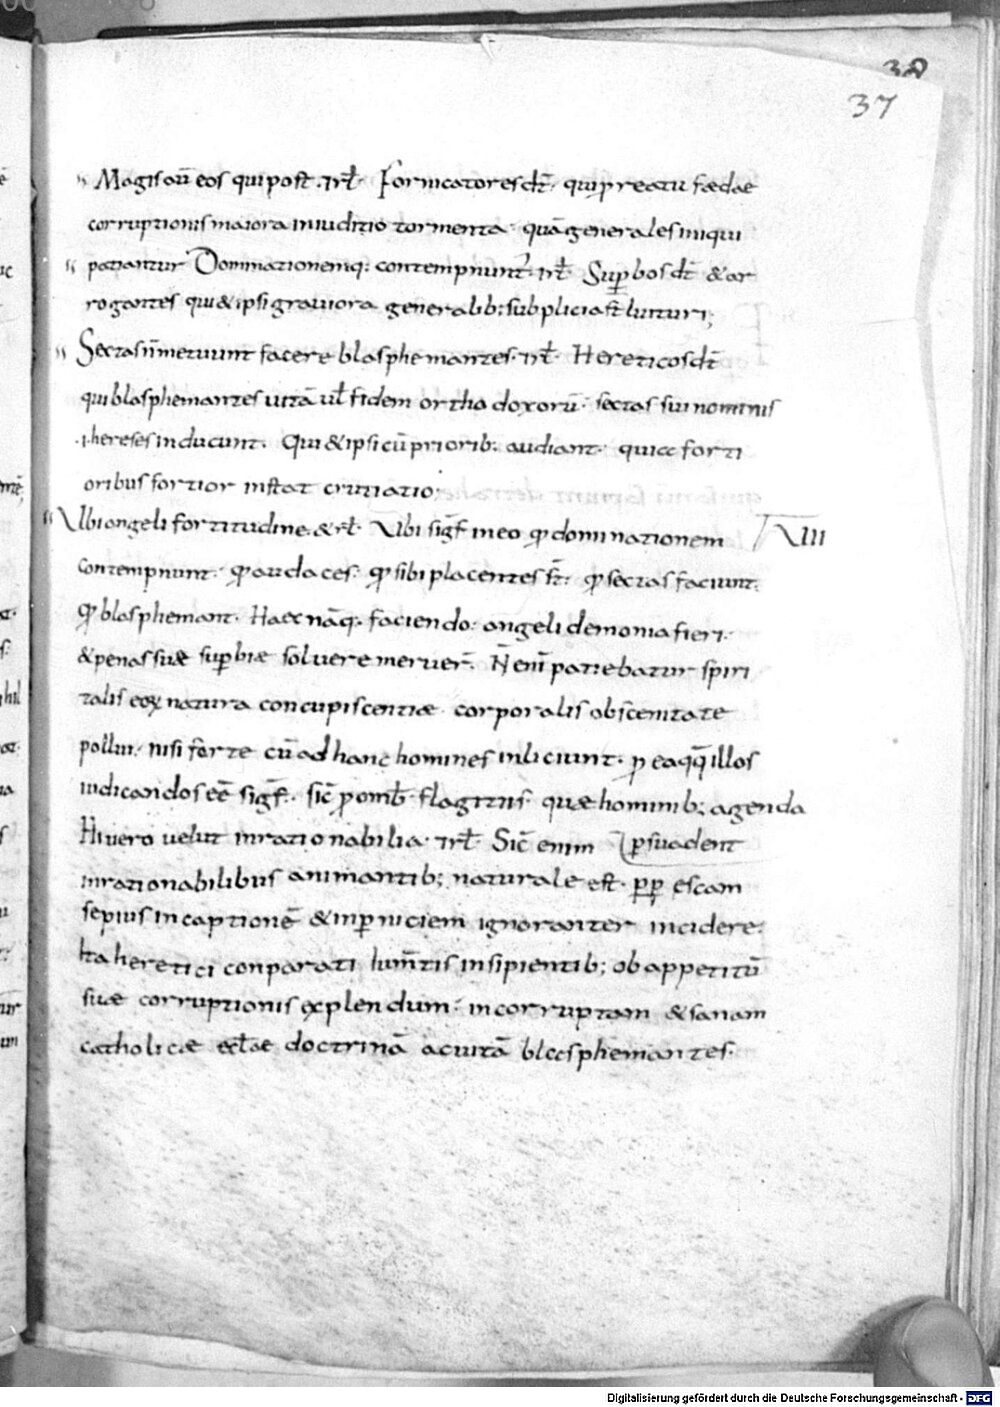 38
37
" Magis aū eos qui post · rł · Fornicatores dt̄ · qui p reatu faedae
corruptionis maiora in iuditio tormenta · quā generales iniqui
" patiantur Dominationemq; contempnunt · rł · Suꝑbos dt̄ & ar
rogantes qui & ipsi graviora generalib; subplicia st̄ luituri;
" Sectas n̄ metuunt facere blasphemantes · rł · Hereticos dt̄
qui blasphemantes vitā vł fidem orthodoxorū · sectas sui nominis
·i· hereses inducunt · Qui & ipsi cū priorib; audiant · quia forti
oribus fortior instat cruciatio;
" Ubi angeli fortitudine & rł · Ubi sigf̄ in eo ꝙ dominationem
VIII
contempnunt · ꝙ audaces · ꝙ sibi placentes st̄ · ꝙ sectas faciunt ·
ꝙ blasphemant · Haec nāq; faciendo · angeli demonia fieri ·
& penas suae suꝑbiae solvere meruer̄ · N̄ eni patiebatur spiri
talis eoꝝ natura concupiscentiae corporalis obscenitate
pollui · nisi forte cū ad hanc homines inliciunt · ꝑ ea qq̄ illos
iudicandos eē sigf̄ · sic̄ p omb̄ flagitiis · quae hominib; agenda
Hi vero velut inrationabilia · rł · Sic̄ enim ꝑsuadent
inrationabilibus animantib; naturale est · ꝑꝑ escam
sepius in captionē & in ꝑniciem ignoranter incidere ·
Ita heretici conparati ium̄tis insipientib; ob appetitū
suae corruptionis explendum · incorruptam & sanam
catholicae eccłae doctrinā ac vitā blasphemantes ·
Digitalisierung gefördert durch die Deutsche Forschungsgemeinschaft - DFG